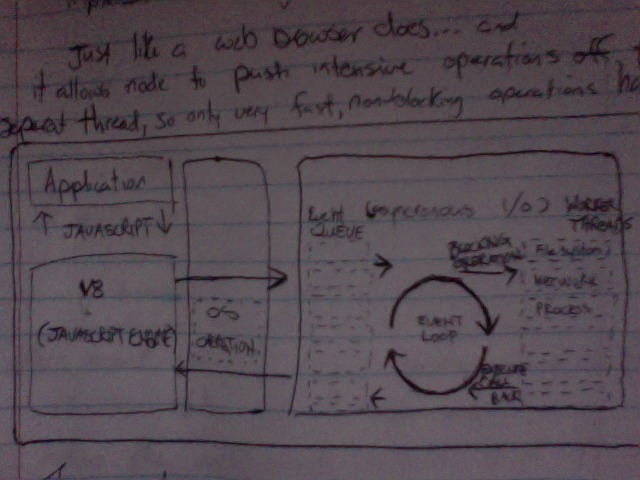 Just like a web browser does... and
it allows node to push intensive operations off,
seperat thread, so only very fast, non-blocking operations
Application
JAVASCRIPT
V8
(JAVASCRIPT ENGINE)
OS
OPERATION
EVENT
QUEUE
I/O)
WORKER
THREADS
BLOCKING
OPERATION
File System
NETWORK
PROCESS
EVENT
LOOP
EXECUTE
CALL
BACK